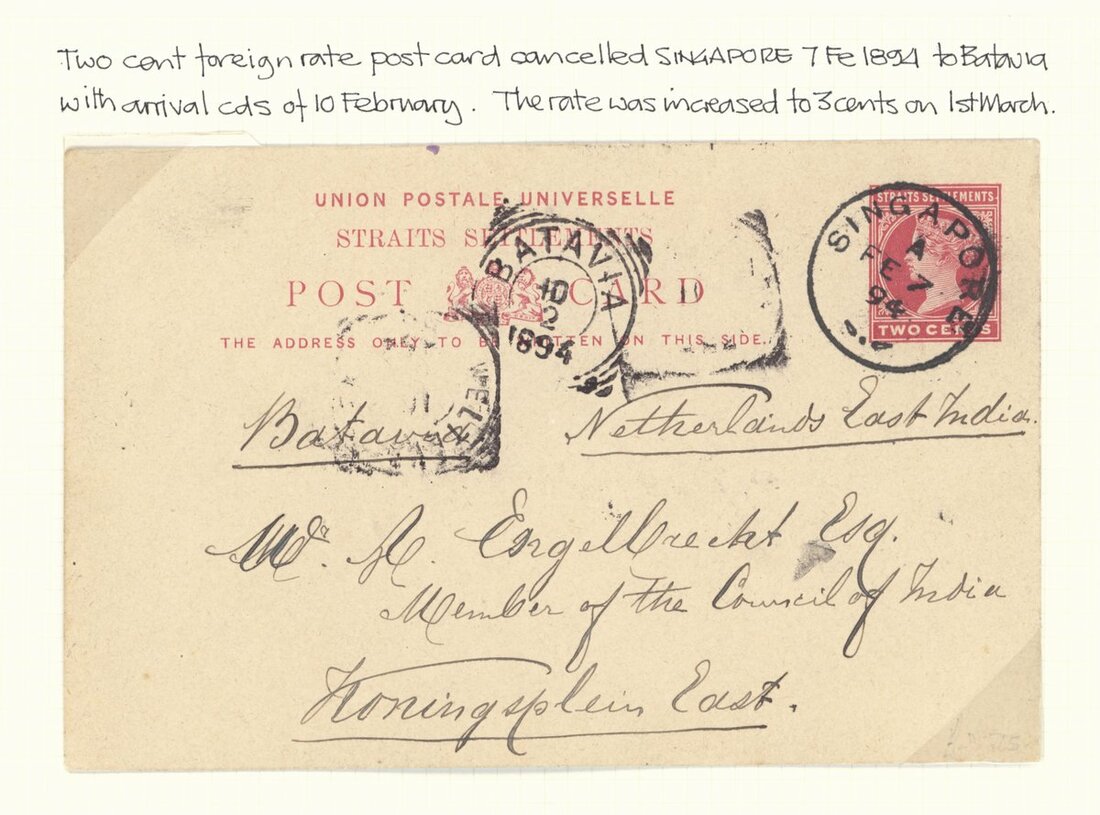 Two cent foreign rate post card cancelled SINGAPORE 7 Fe 1894 to Batavia
with arrival cds of 10 February. The rate was increased to 3 cents on 1st March.
UNION POSTALE UNIVERSELLE
STRAITS SETTLEMENTS
POST CARD
THE ADDRESS ONLY TO BE WRITTEN ON THIS SIDE.
STRAITS SETTLEMENTS.
TWO CENTS
SINGAPORE
A
FE 7
94
BATAVIA
10
2
1894
WELT
Batavia Netherlands East India.
Mr. A. Engelbrecht Esq.
Member of the Council of India
Koningsplein East.